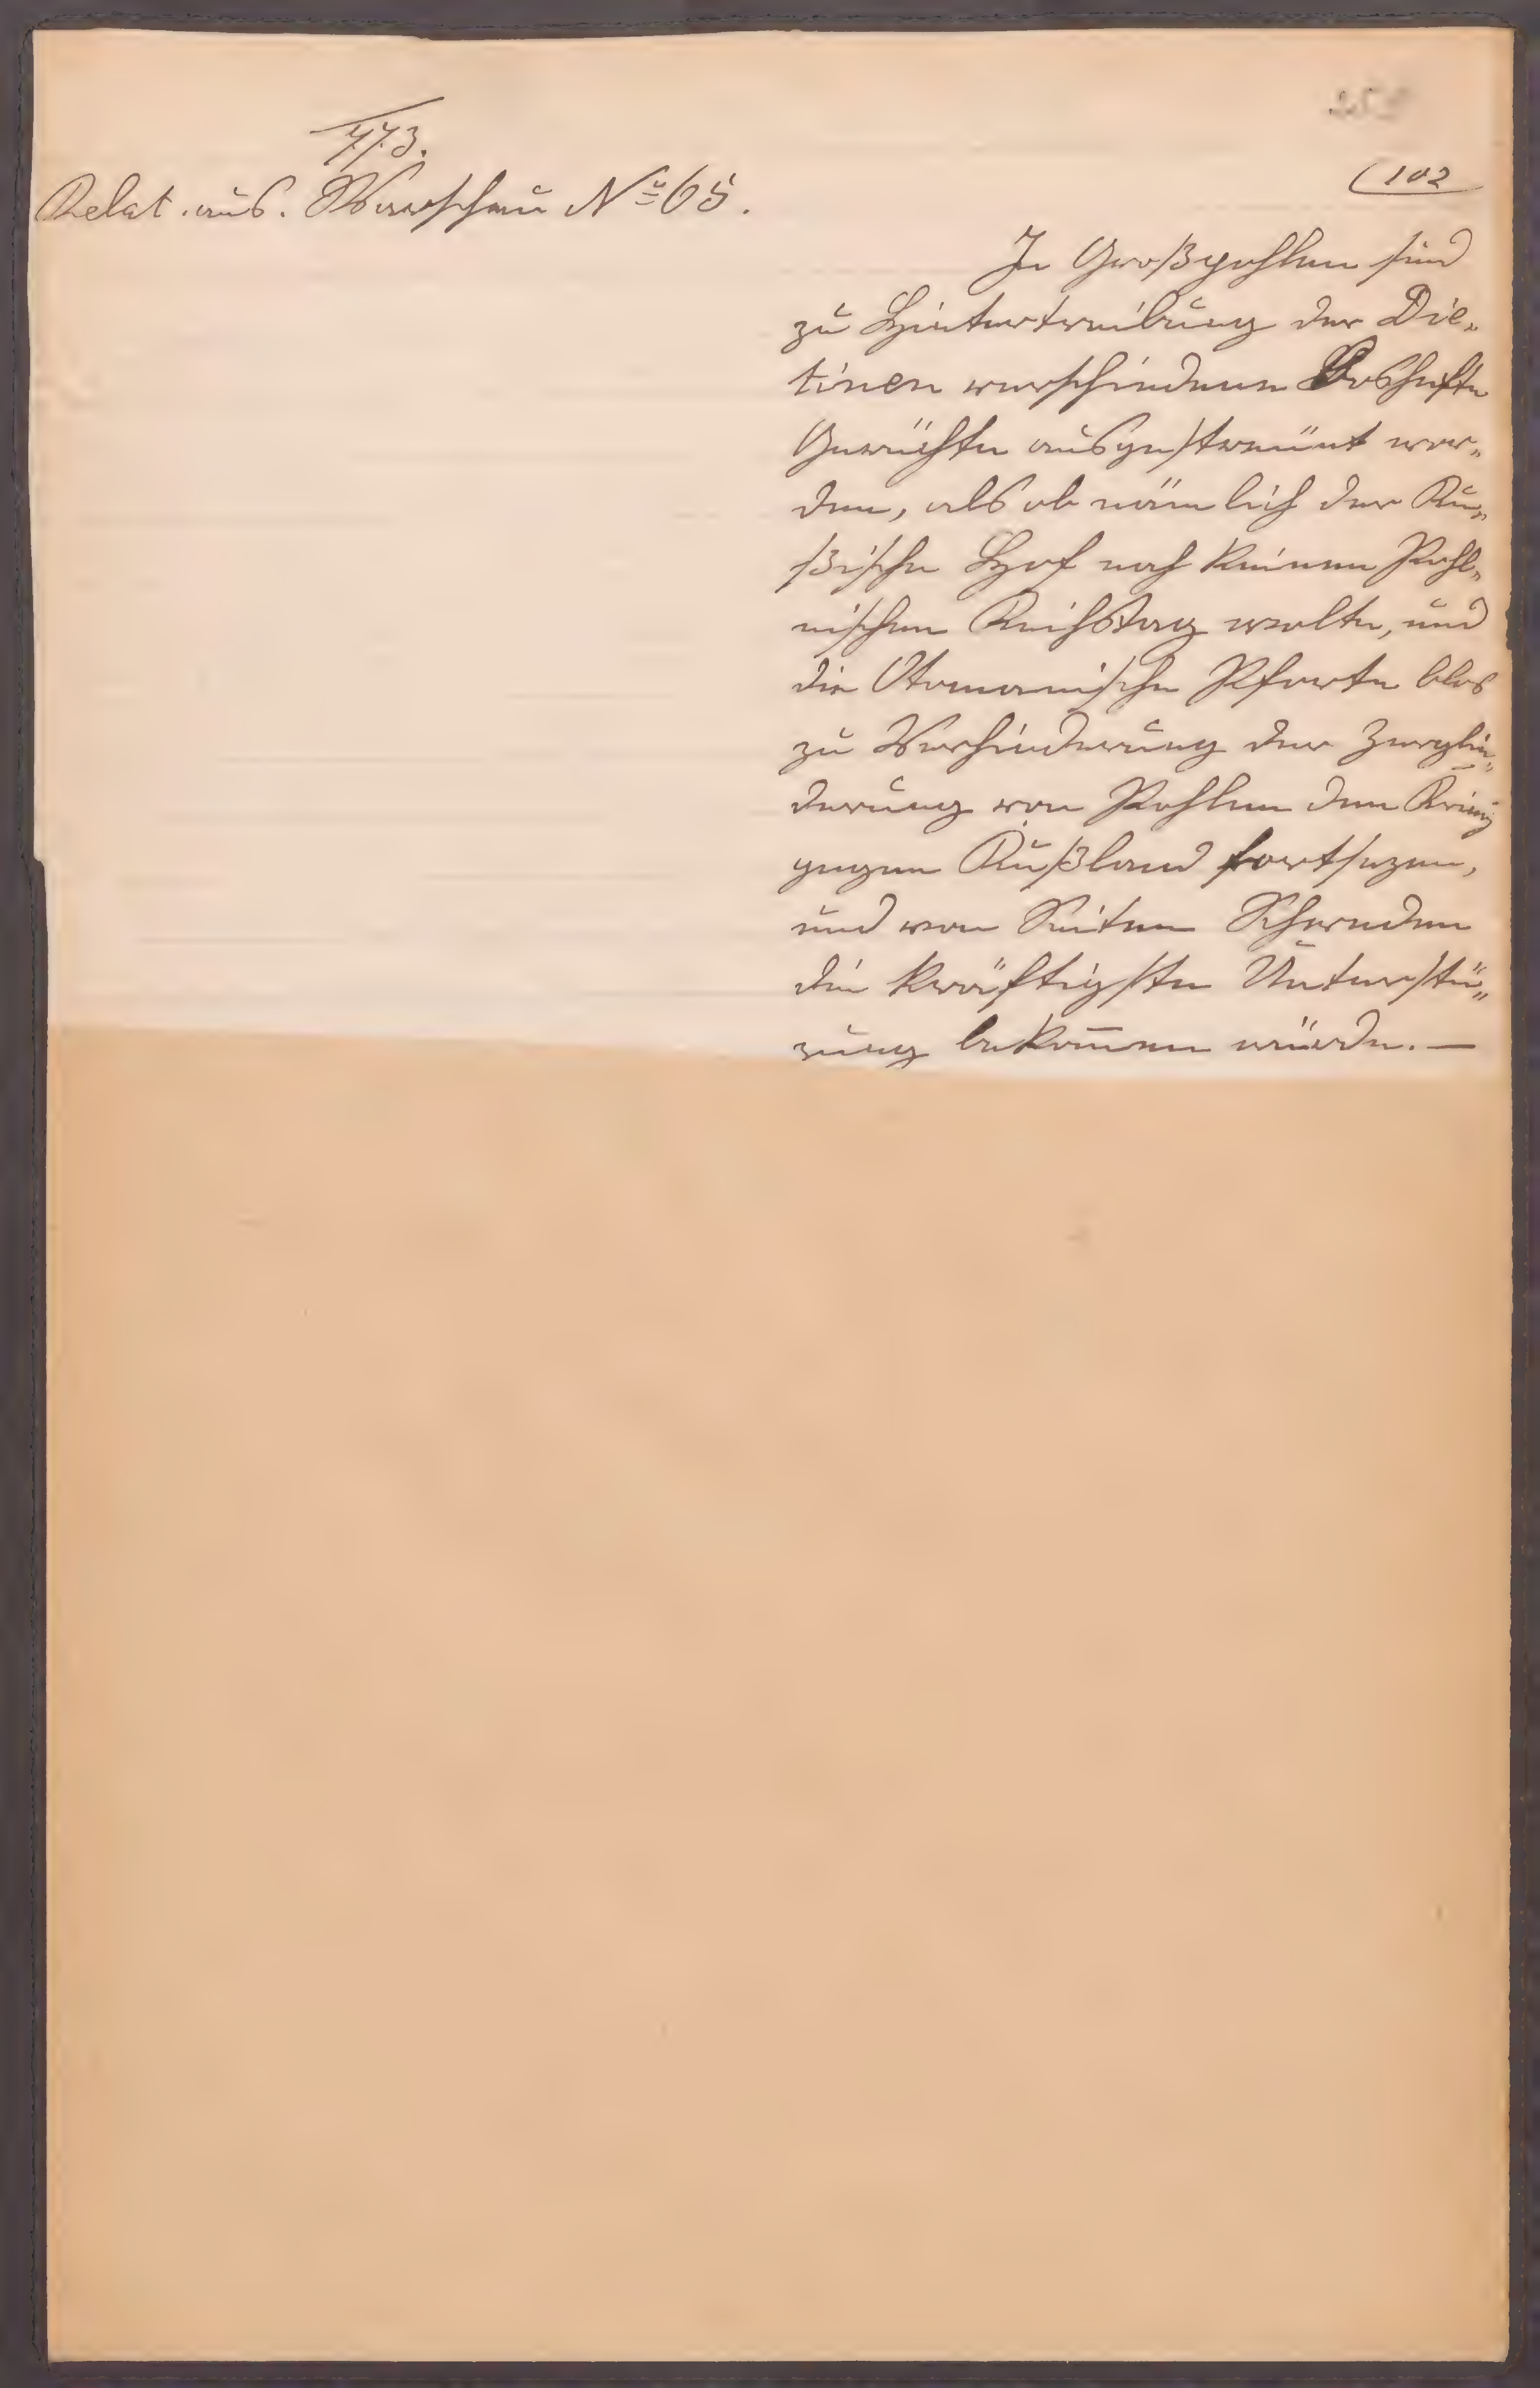 773.
Relat. aus. Warschau No 65.
(102
In Großpohlen sind
zu Hintertreibung der Die„
tinen verschiedene Boshafte
Gerüchte ausgestreüet wor„
den, als ob nämlich der Ru„
ßische Hof noch keinen Pohl„
nischen Reichstag wolte, und
die Otomanische Pforte blos
zu Verhinderung der Zerglie„
derung von Pohlen den Krieg
gegen Rußland fortsezen,
und von Seiten Schweden
die kräftigste Unterstü„
zung bekom̄en würde. —